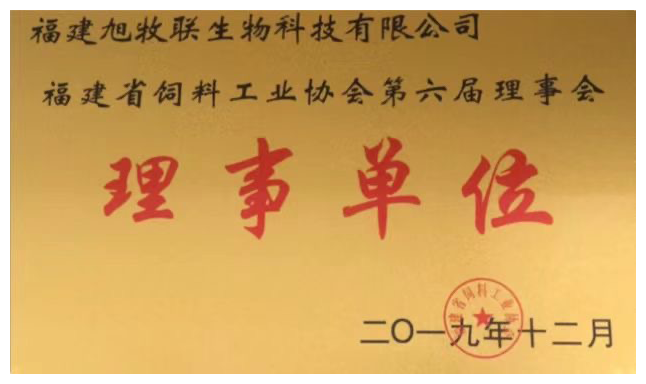 福建旭牧联生物科技有限公司
福建省饲料工业协会第六届理事会
理事单位
福建省饲料工业协会
二〇一九年十二月